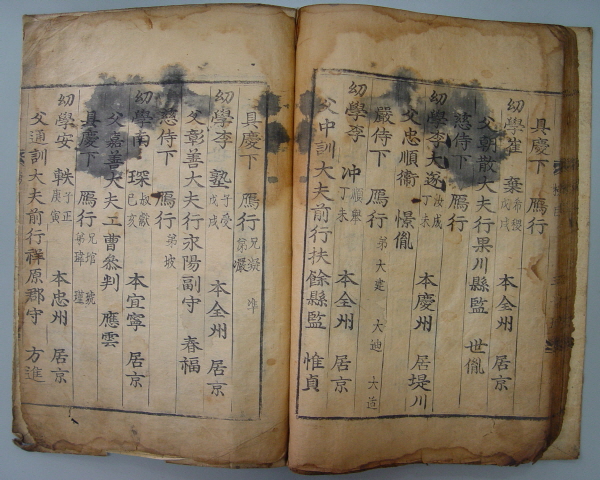 具慶下 鴈行
幼學崔 棄 希稷 戊戌 本全州 居京
父朝散大夫行果川縣監 世胤
慈侍下 鴈行
幼學李大遂 汝成 丁未 本慶州 居堤川
父忠順衛 憬胤
嚴侍下 鴈行 弟大建 大迪 大造
幼學李 冲 順擧 丁未 本全州 居京
父中訓大夫前行扶餘縣監 惟貞
具慶下 鴈行 兄凝 準
幼學李 塾 子受 戊戌 本全州 居京
父彰善大夫行永陽副守 春福
慈侍下 鴈行 弟坡
幼學南 琛 叔獻 己亥 本宜寧 居京
父嘉善大夫工曹參判 應雲
具慶下 鴈行 兄琯 琥 弟瑋
幼學安 軼 子正 庚寅 本忠州 居京
父通訓大夫前行祥原郡守 方進